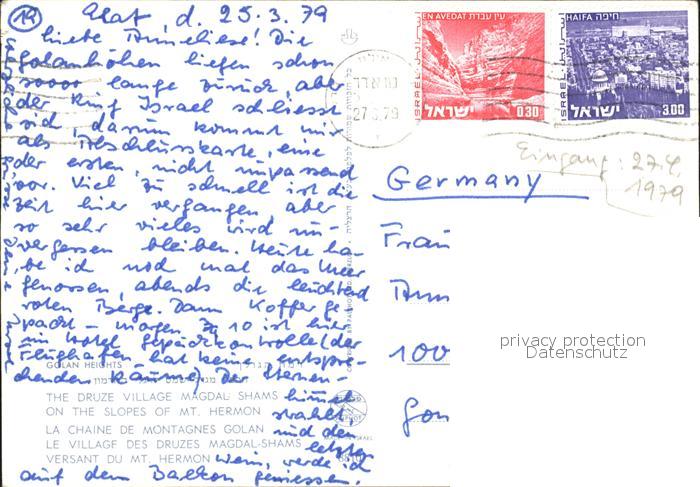 19
Elat, d. 25.3.79
Liebe Anneliese! Die
Golanhöhen liegen schon
soooo lange zurück, aber
der Ring Israel schliesst
sich, darum kommt mir
als Abschlusskarte, eine
der ersten, nicht unpassend
vor. Viel zu schnell ist die
Zeit hier vergangen, aber
so sehr vieles wird un-
vergessen bleiben. Heute ha-
be ich noch mal das Meer
genossen, abends die leuchtend
roten Berge. Dann Koffer ge
packt - morgen 10 ist hier
im Hotel Gepäckkontrolle (der
Flughafen hat keine entspre-
chenden Räume) Der Sternen-
himmel
strahlt,
und den
letzten
Wein, werde ich
auf dem Balkon geniessen.
GOLAN HEIGHTS
THE DRUZE VILLAGE MAGDAL SHAMS
ON THE SLOPES OF MT. HERMON
LA CHAINE DE MONTAGNES GOLAN
LE VILLAGE DES DRUZES MAGDAL-SHAMS
VERSANT DU MT. HERMON
EN AVEDAT עין עבדת
ISRAEL
ישראל
0.30
HAIFA חיפה
ISRAEL
ישראל
3.00
אילת
27.3.79
Eingang: 27.4.
1979
Germany
Frau
Ann
100
privacy protection
Datenschutz